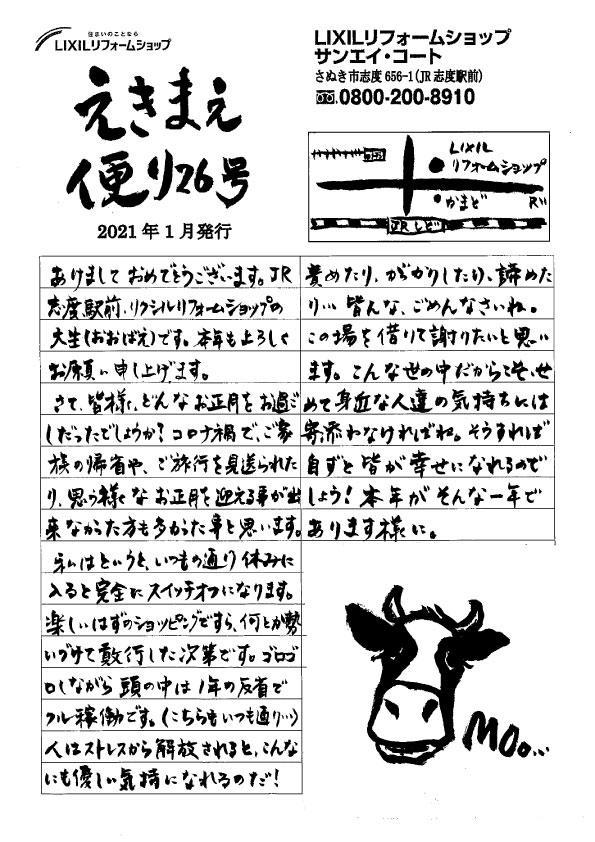 住まいのことなら
LIXILリフォームショップ
LIXILリフォームショップ
サンエイ・コート
さぬき市志度 656-1(JR 志度駅前)
0800-200-8910
えきまえ
便り26号
2021 年 1 月発行
LIXIL
リフォームショップ
かまど
R11
JRしど
あけまして おめでとうございます。JR
志度駅前、リクシルリフォームショップの
大生(おおばえ)です。本年も よろしく
お願い申し上げます。
さて、皆様、どんなお正月をお過ご
しだったでしょうか? コロナ禍で、ご家
族の帰省や、ご旅行を見送られた
り、思う様なお正月を迎える事が出
来なかった方も多かった事と思います。
私はというと、いつもの通り休みに
入ると完全にスイッチオフになります。
楽しいはずのショッピングですら、何とか勢
いづけて敢行した次第です。ゴロゴ
ロしながら頭の中は1年の反省で
フル稼働です。(こちらもいつも通り…)
人はストレスから解放されると、こんな
にも優しい気持になれるのだ!
責めたり、がっかりしたり、諦めた
り… 皆んな、ごめんなさいね。
この場を借りて謝りたいと思い
ます。こんな世の中だからこそ、せ
めて身近な人達の気持ちには
寄添わなければね。そうすれば
自ずと皆が幸せになれるので
しょう! 本年がそんな一年で
あります様に。
MOo...